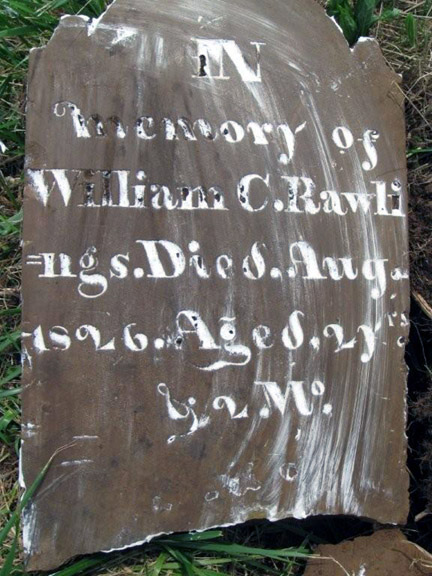 IN
Memory of
William C. Rawli
=ngs. Died. Aug.
1826. Aged. 2yrs
& 2. Mo.